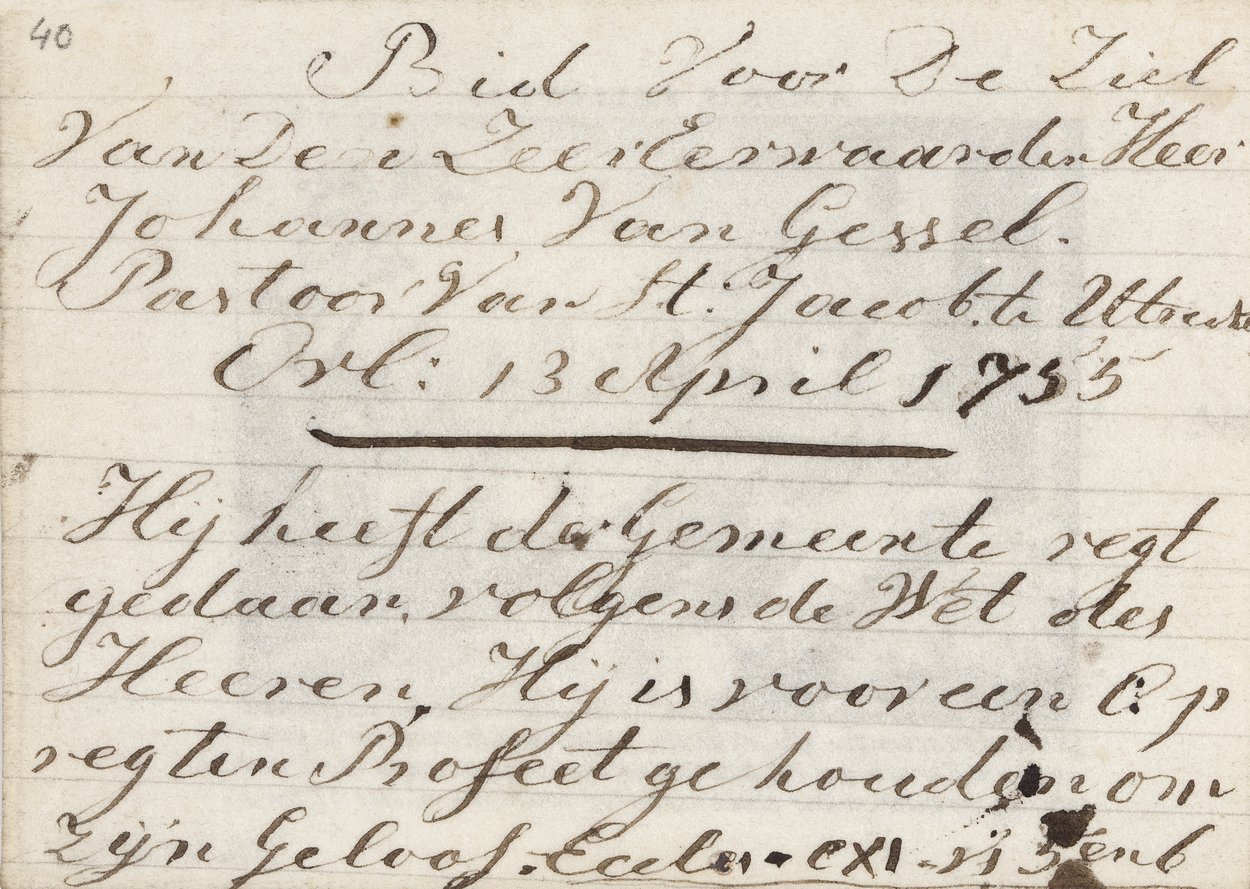 40
Bid Voor De Ziel
Van Den Zeer Eerwaarden Heer
Johannes Van Gessel.
Pastoor Van St. Jacob te Utrecht
Ovl: 13 April 1755
Hij heeft de Gemeente regt
gedaan, volgens de Wet des
Heeren, Hij is voor een Op
regten Profeet gehouden om
Zijn Geloof. Eccles.